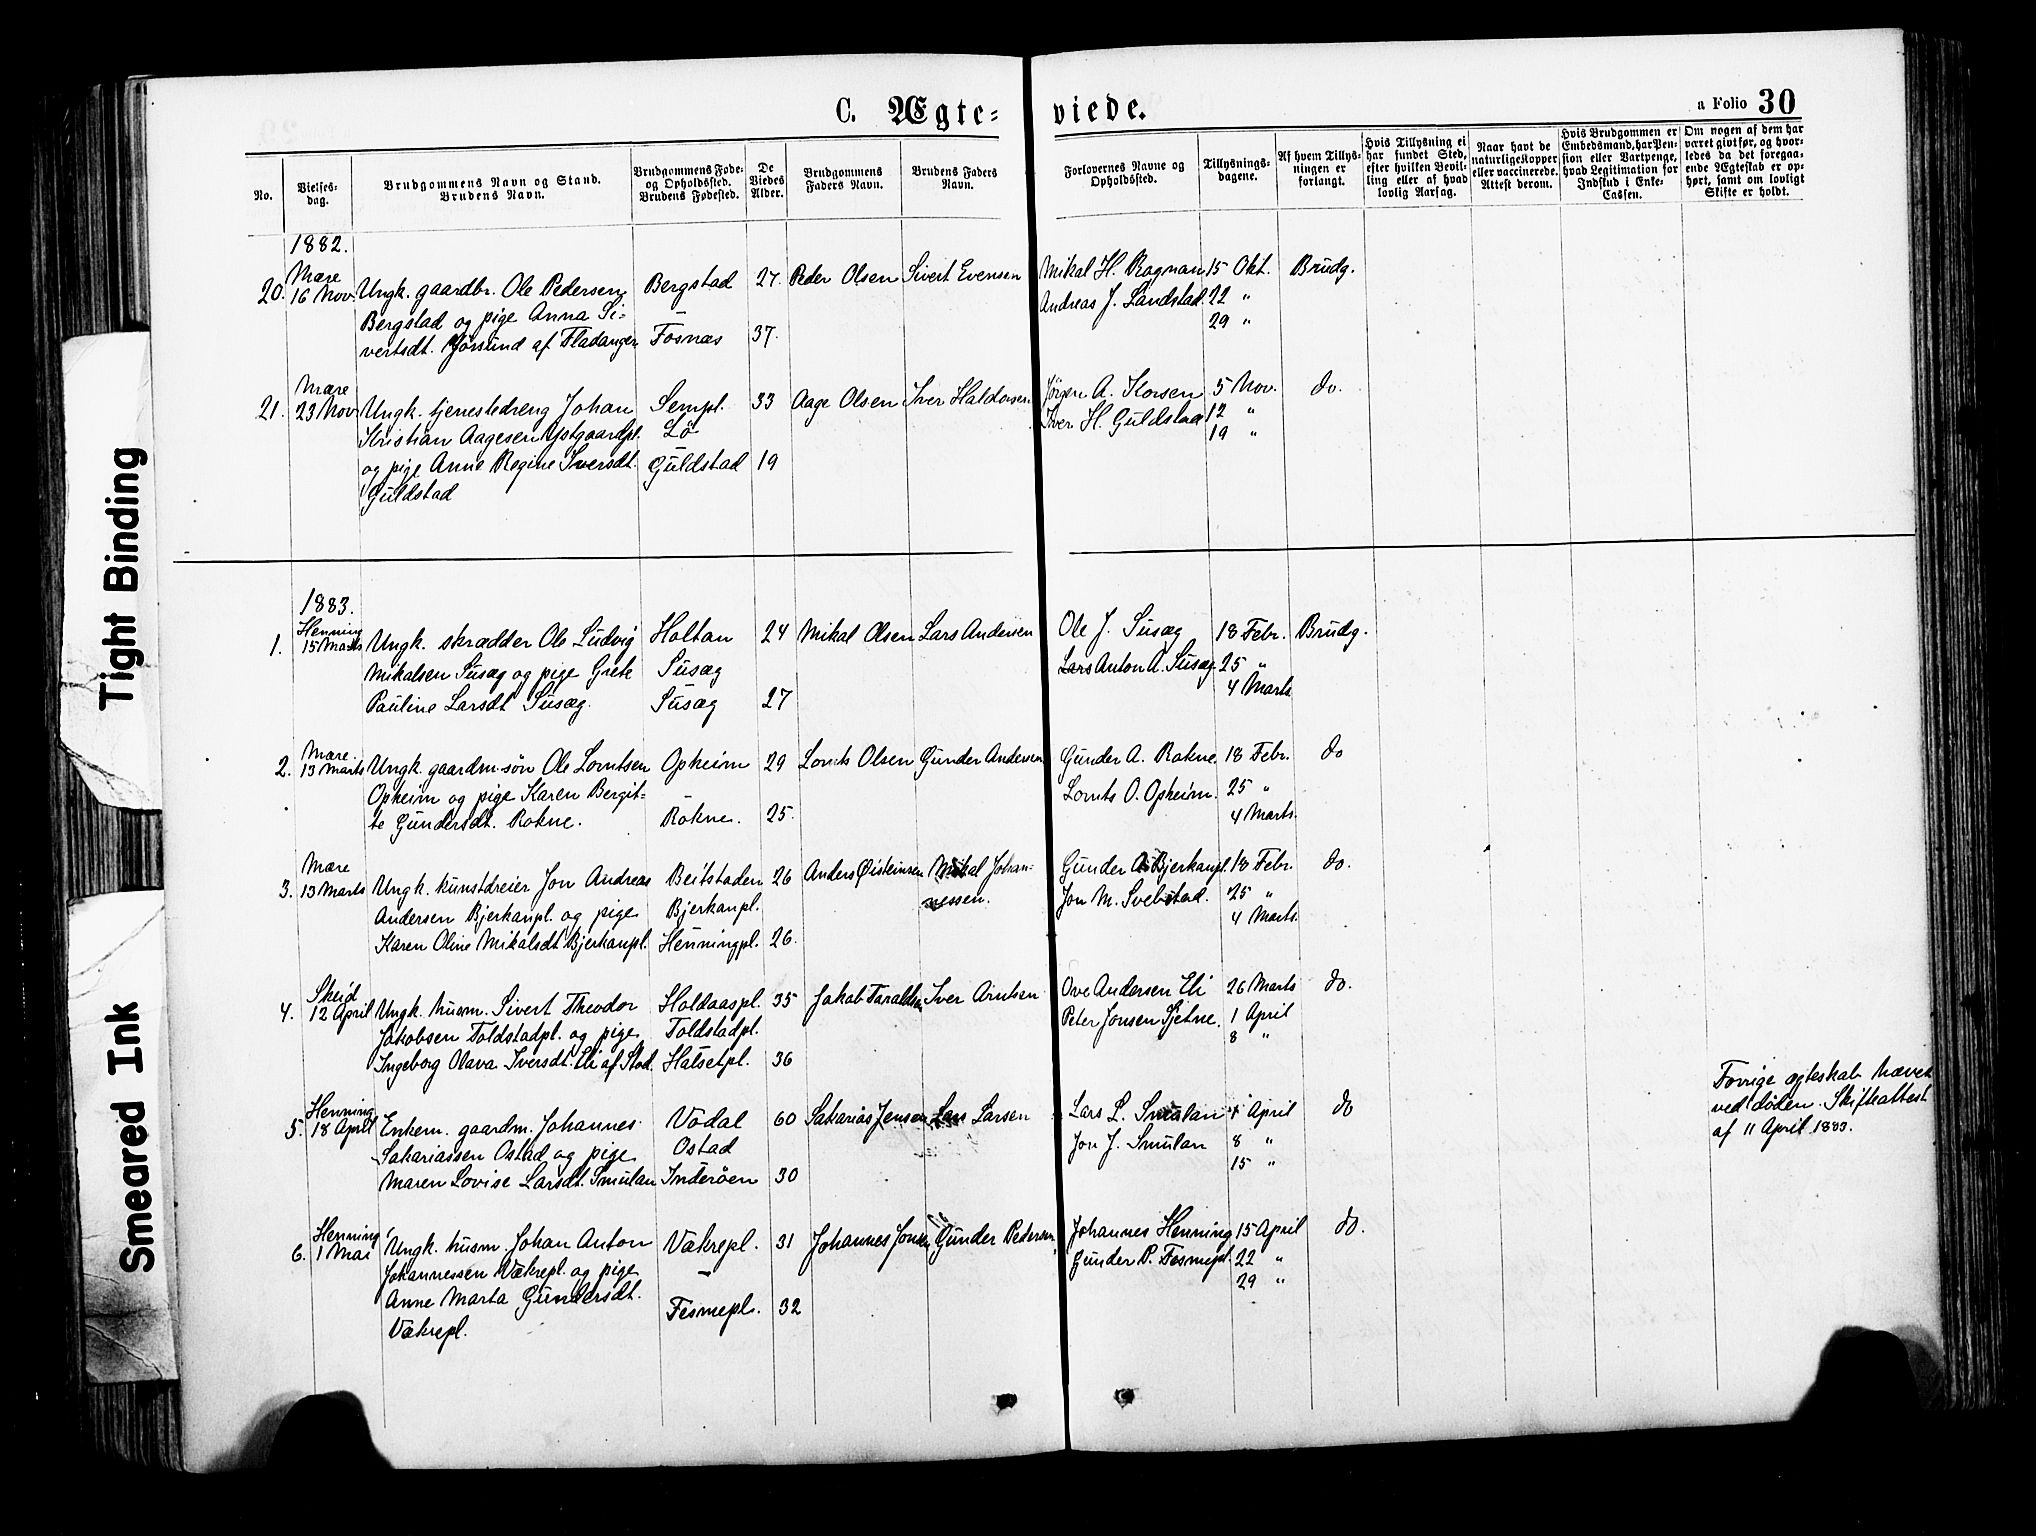 C. Ægte= viede.
a Folio 30
No.
Vielses-
dag.
Brudgommens Navn og Stand.
Brudens Navn.
Brudgommens Føde-
og Opholdssted.
Brudens Fødested.
De
Viedes
Alder.
Brudgommens
Faders Navn.
Brudens Faders
Navn.
Forlovernes Navne og
Opholdssted.
Tillysnings-
dagene.
Af hvem Tillys-
ningen er
forlangt.
Hvis Tillysning ei
har fundet Sted,
efter hvilken Bevil-
ling eller af hvad
lovlig Aarsag.
Naar havt de
naturlige Kopper
eller vaccinerede.
Attest derom.
Hvis Brudgommen er
Embedsmand, har Pen-
sion eller Vartpenge,
hvad Legitimation for
Indskud i Enke-
Cassen.
Om nogen af dem har
været gift før, og hvor-
ledes da det foregaa-
ende Ægteskab er op-
hørt, samt om lovligt
Skifte er holdt.
1882.
20. Mære
16 Nov. Ungk. gaardbr. Ole Pedersen Bergstad 27. Peder Olsen Sivert Evensen Mikal H. Rognan 15 Okt. Brudg.
Andreas J. Landstad 22 "
Bergstad og pige Anna Si= 29 "
vertsdt. Jøssund af Fladanger Fosnæs 37.
21. Mære
23 Nov Ungk. tjenestedreng Johan Sempl. 33 Aage Olsen Iver Haldorsen Jørgen A. Korsen 5 Nov. do.
Kristian Aagesen Ystgaardpl. Lö Iver H. Guldstad 12 "
19 "
og pige Anne Regine Iversdt. Guldstad 19
Guldstad
1883.
1. Henning
15 Marts Ungk. skrædder Ole Ludvig Holtan 24 Mikal Olsen Lars Andersen Ole J. Susæg 18 Febr. Brudg.
Mikalsen Susæg og pige Grete Susæg Lars Anton A. Susæg 25 "
4 Marts
Pauline Larsdt Susæg. Susæg 27
2. Mære
13 Marts Ungk. gaardm.søn Ole Lorntsen Opheim 29 Lornts Olsen Gunder Andersen Gunder A. Rokne 18 Febr. do
Opheim og pige Karen Bergit= Lornts O. Opheim. 25 "
te Gundersdt. Rokne. Rokne. 25. 4 Marts.
3. Mære
13 Marts Ungk. kunstdreier Jon Andreas Beitstaden 26 Anders Øisteinsen Mikal Johan- Gunder A. Bjerkanpl. 18 Febr. do.
Andersen Bjerkanpl. og pige Bjerkanpl. nessen. Jon M. Svebstad. 25 "
4 Marts.
Karen Oline Mikalsdt Bjerkanpl. Henningpl. 26.
4. Skeid
12 April Ungk. husm. Sivert Theodor Haldaaspl. 35 Jakob Taraldsen Iver Arntsen Ove Andersen Eli 26 Marts do.
Jakobsen Foldstadpl. og pige Foldstadpl. Peter Jonsen Sjetne. 1 April
8 "
Ingeborg Olava Iversdt. Eli af Stod. Halsetpl. 36
5. Henning
18 April Enkem. gaardm. Johannes Vodal 60 Sakarias Jensen Lars Larsen Lars L. Smulan 1 April do
Forrige ægteskab hævet
ved døden. Skifteattest
af 11 April 1883.
Sakariassen Ostad og pige Ostad Jon J. Smulan 8 "
15 "
Maren Lovise Larsdt. Smulan Inderøen 30
6. Henning
1 Mai Ungk. husm. Johan Anton Vækrepl. 31 Johannes Jonsen Gunder Pedersen Johannes Henning 15 April do.
Johannessen Vækrepl. og pige – Gunder P. Fesmepl. 22 "
29 "
Anne Marta Gundersdt. Fesmepl. 32
Vækrepl.
Tight Binding
Smeared Ink